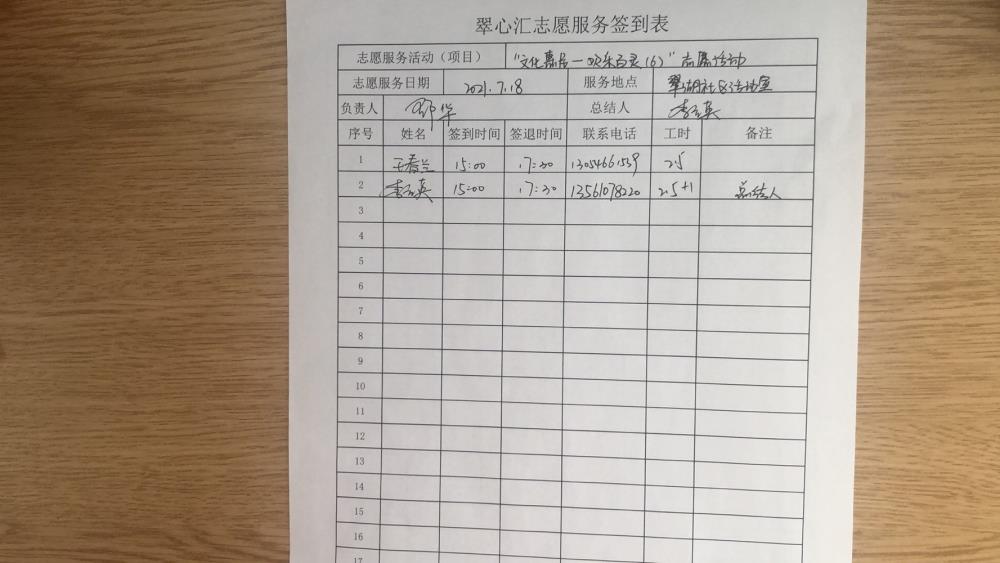 翠心汇志愿服务签到表
志愿服务活动（项目） "文化惠居—欢乐百灵(6)"志愿活动
志愿服务日期 2021.7.18 服务地点 翠湖社区活动室
负责人 邵华 总结人 李玉英
序号 姓名 签到时间 签退时间 联系电话 工时 备注
1 王春兰 15:00 17:30 13054661539 2.5
2 李玉英 15:00 17:30 13561078220 2.5+1 总结人
3
4
5
6
7
8
9
10
11
12
13
14
15
16
17